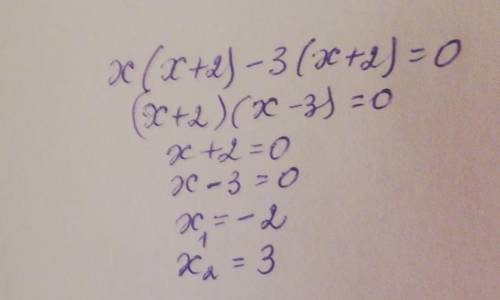 x(x+2)-3(x+2)=0
(x+2)(x-3)=0
x+2=0
x-3=0
x₁=-2
x₂=3